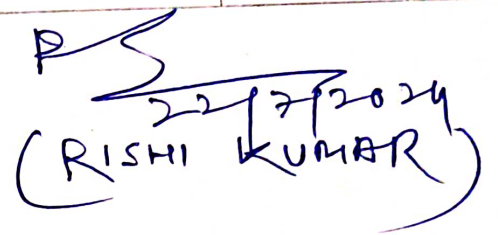 22/7/2024
(RISHI KUMAR)